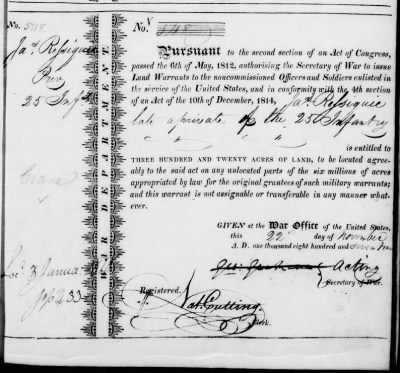 No. 548
Jas. Ressiguie
Priv
25 Inft
WAR DEPARTMENT.
No. 548
Pursuant to the second section of an Act of Congress,
passed the 6th of May, 1812, authorising the Secretary of War to issue
Land Warrants to the noncommissioned Officers and Soldiers enlisted in
the service of the United States, and in conformity with the 4th section
of an Act of the 10th of December, 1814, Jas. Ressiguie
late a private of the 25th Infantry
is entitled to
THREE HUNDRED AND TWENTY ACRES OF LAND, to be located agree-
ably to the said act on any unlocated parts of the six millions of acres
appropriated by law for the original grantees of such military warrants;
and this warrant is not assignable or transferable in any manner what-
ever.
GIVEN at the War Office of the United States,
this 22d day of November
A. D. one thousand eight hundred and seventeen
Acting
Secretary of War.
Registered.
Nat. Cutting
Clerk.